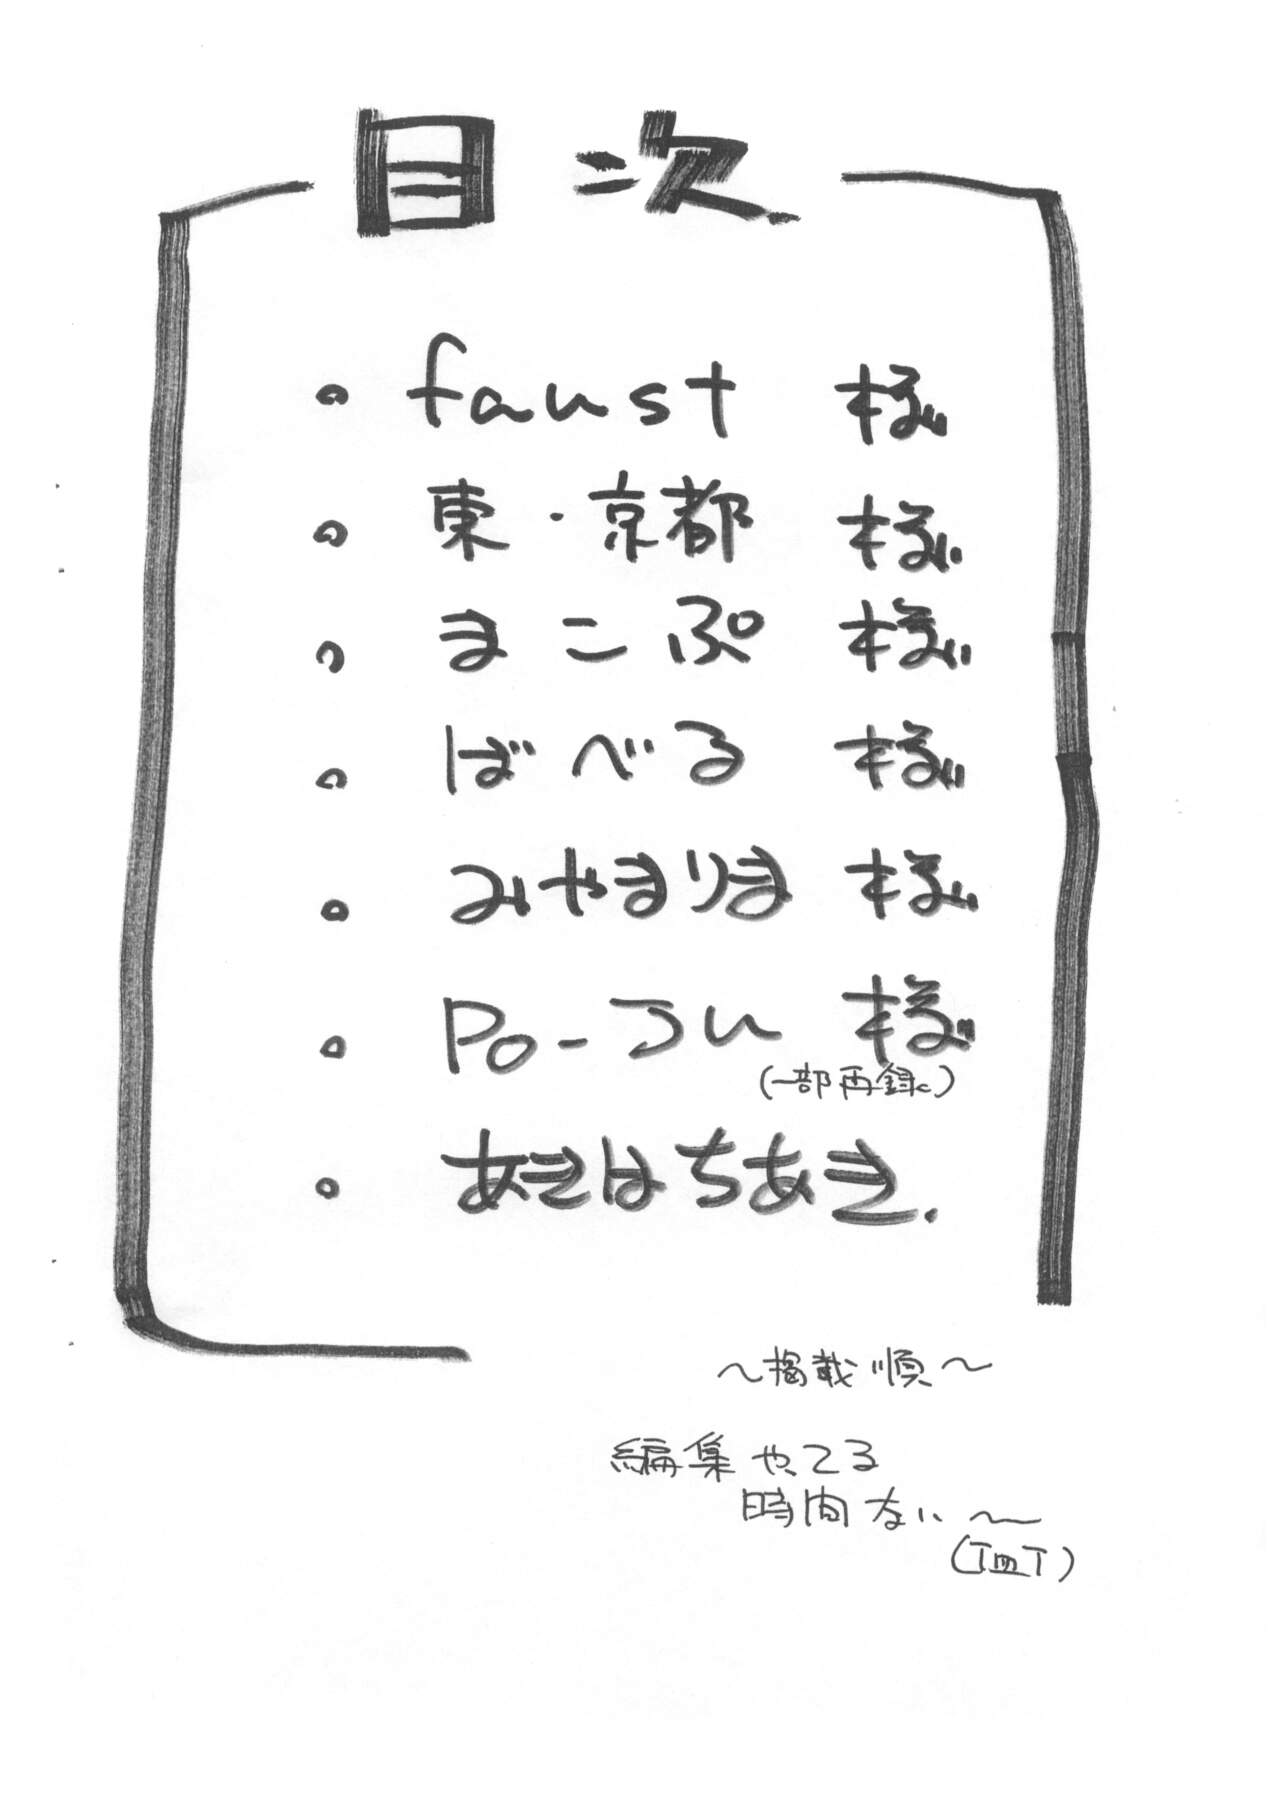 目次
・faust 様
・東・京都 様
・まこぷ 様
・ばべる 様
・みやまりま 様
・Po-づい 様
(一部再録)
・あきはちあき.
〜掲載順〜
編集やってる
時間ない〜
(T皿T)